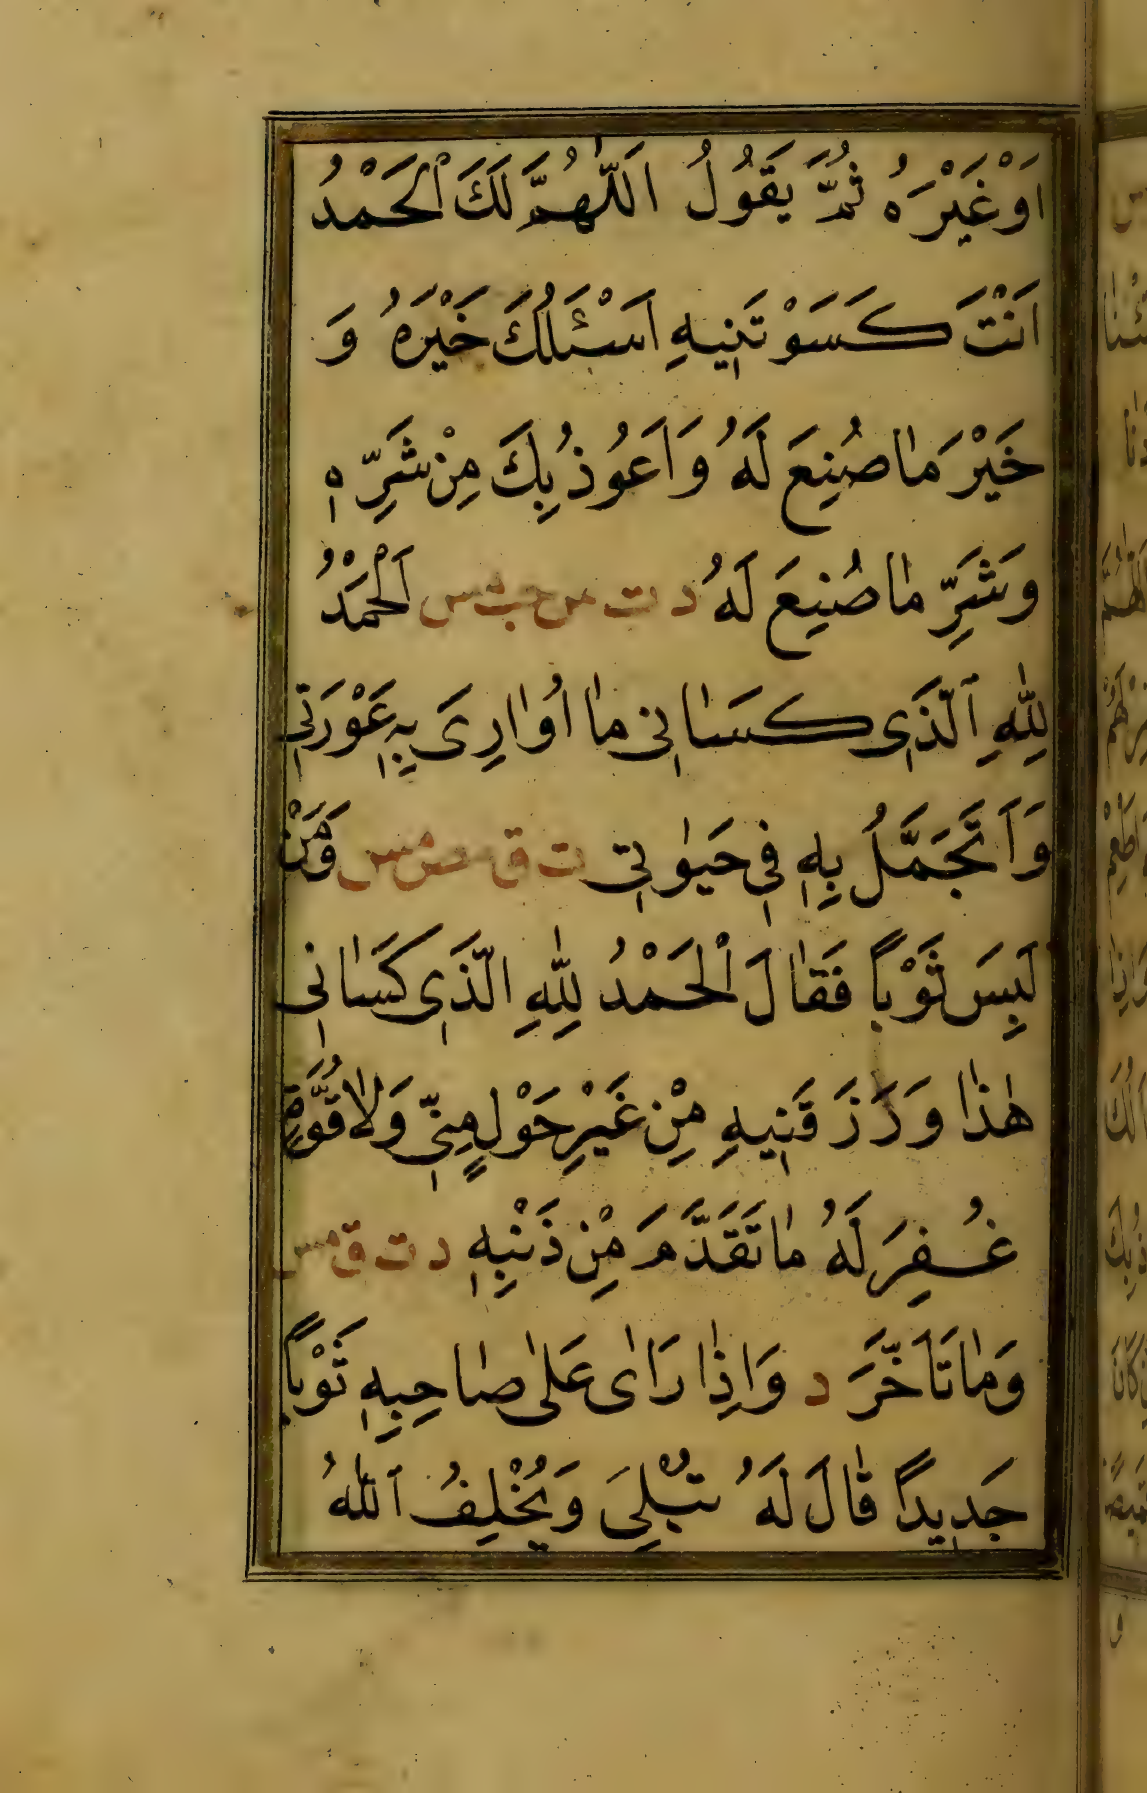 اَوْغَيْرَهُ ثُمَّ يَقُولُ اَللّٰهُمَّ لَكَ الْحَمْدُ
اَنْتَ كَسَوْتَنِيهِ اَسْئَلُكَ خَيْرَهُ وَ
خَيْرَ مَا صُنِعَ لَهُ وَاَعُوذُ بِكَ مِنْ شَرِّهٖ
وَشَرِّ مَا صُنِعَ لَهُ د ت س حب مس اَلْحَمْدُ
لِلّٰهِ الَّذٖى كَسَانٖى مَا اُوَارِىَ بِهٖ عَوْرَتٖى
وَاَتَجَمَّلُ بِهٖ فٖى حَيٰوتٖى ت ق مص مس وَمَنْ
لَبِسَ ثَوْباً فَقَالَ اَلْحَمْدُ لِلّٰهِ الَّذٖى كَسَانٖى
هٰذَا وَرَزَقَنٖيهِ مِنْ غَيْرِ حَوْلٍ مِنّٖى وَلَا قُوَّةٍ
غُفِرَ لَهُ مَا تَقَدَّمَ مِنْ ذَنْبِهٖ د ت ق مس
وَمَا تَاَخَّرَ د وَاِذَا رَاٰى عَلٰى صَاحِبِهٖ ثَوْباً
جَدٖيداً قَالَ لَهُ تُبْلِىَ وَيُخْلِفُ اللّٰهُ